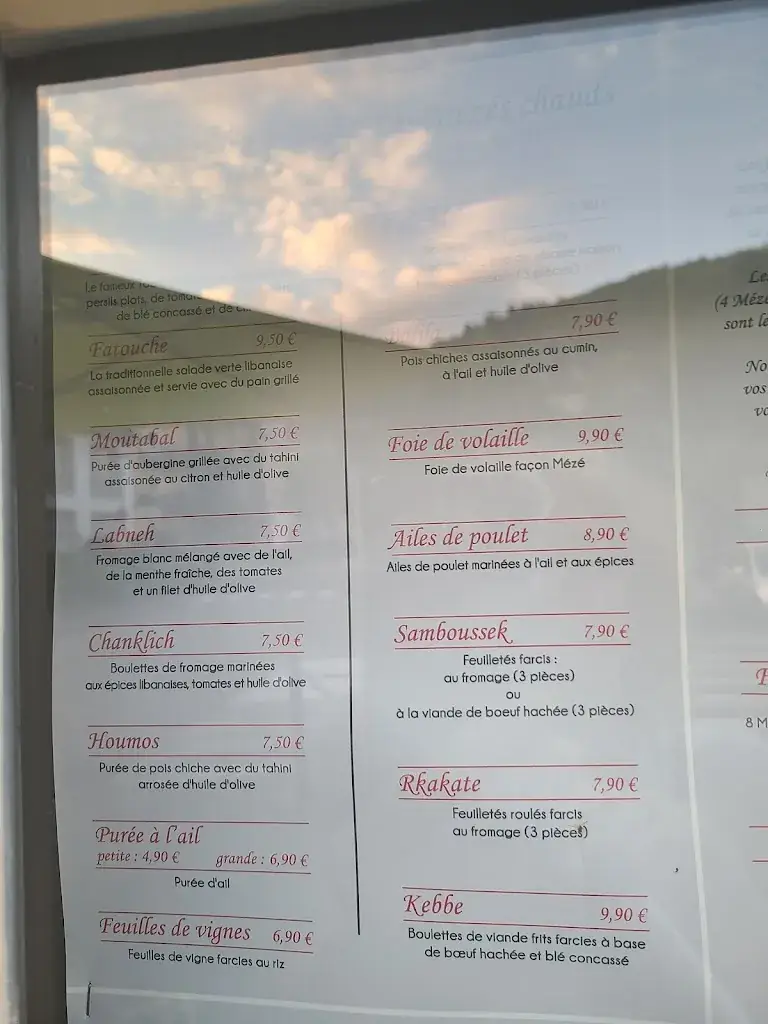 Le fameux
persils plats, de
de blé concassé et de
Farouche 9,50 €
La traditionnelle salade verte libanaise
assaisonnée et servie avec du pain grillé
Moutabal 7,50 €
Purée d'aubergine grillée avec du tahini
assaisonée au citron et huile d'olive
Labneh 7,50 €
Fromage blanc mélangé avec de l'ail,
de la menthe fraîche, des tomates
et un filet d'huile d'olive
Chanklich 7,50 €
Boulettes de fromage marinées
aux épices libanaises, tomates et huile d'olive
Houmos 7,50 €
Purée de pois chiche avec du tahini
arrosée d'huile d'olive
Purée à l'ail
petite : 4,90 € grande : 6,90 €
Purée d'ail
Feuilles de vignes 6,90 €
Feuilles de vigne farcies au riz
7,90 €
Pois chiches assaisonnés au cumin,
à l'ail et huile d'olive
Foie de volaille 9,90 €
Foie de volaille façon Mézé
Ailes de poulet 8,90 €
Ailes de poulet marinées à l'ail et aux épices
Samboussek 7,90 €
Feuilletés farcis :
au fromage (3 pièces)
ou
à la viande de boeuf hachée (3 pièces)
Rkakate 7,90 €
Feuilletés roulés farcis
au fromage (3 pièces)
Kebbe 9,90 €
Boulettes de viande frits farcies à base
de bœuf hachée et blé concassé
(4 Mézé
sont
No
vos
8 M